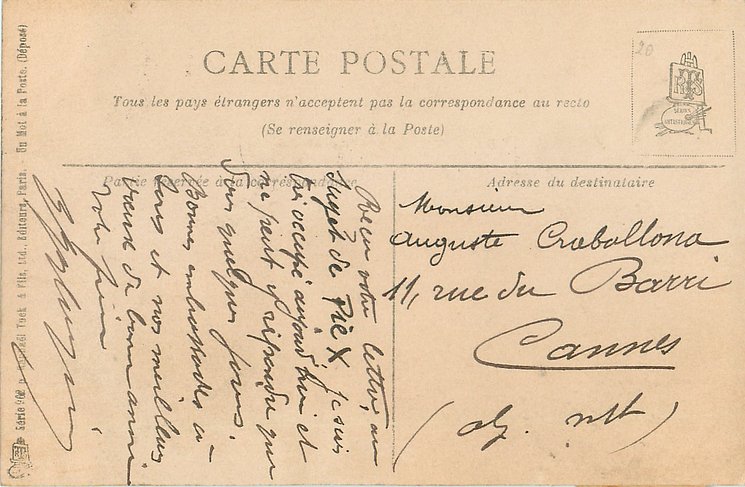 CARTE POSTALE
Tous les pays étrangers n'acceptent pas la correspondance au recto
(Se renseigner à la Poste)
Partie réservée à la correspondance
Adresse du destinataire
20
RTS
Monsieur
Auguste Craballona
11, rue du Barri
Cannes
(Alp. mtt)
Recu votre lettre, au
sujet de Pie X je suis
très occupé aujourd'hui et
ne peut y répondre que
dans quelques jours.
Bonnes embrassades à
tous et nos meilleurs
voeux de bonne année
votre frère
Série 962 p. Raphaël Tuck & Fils, Ltd., Editeurs, Paris. Un Mot à la Poste. (Déposé)